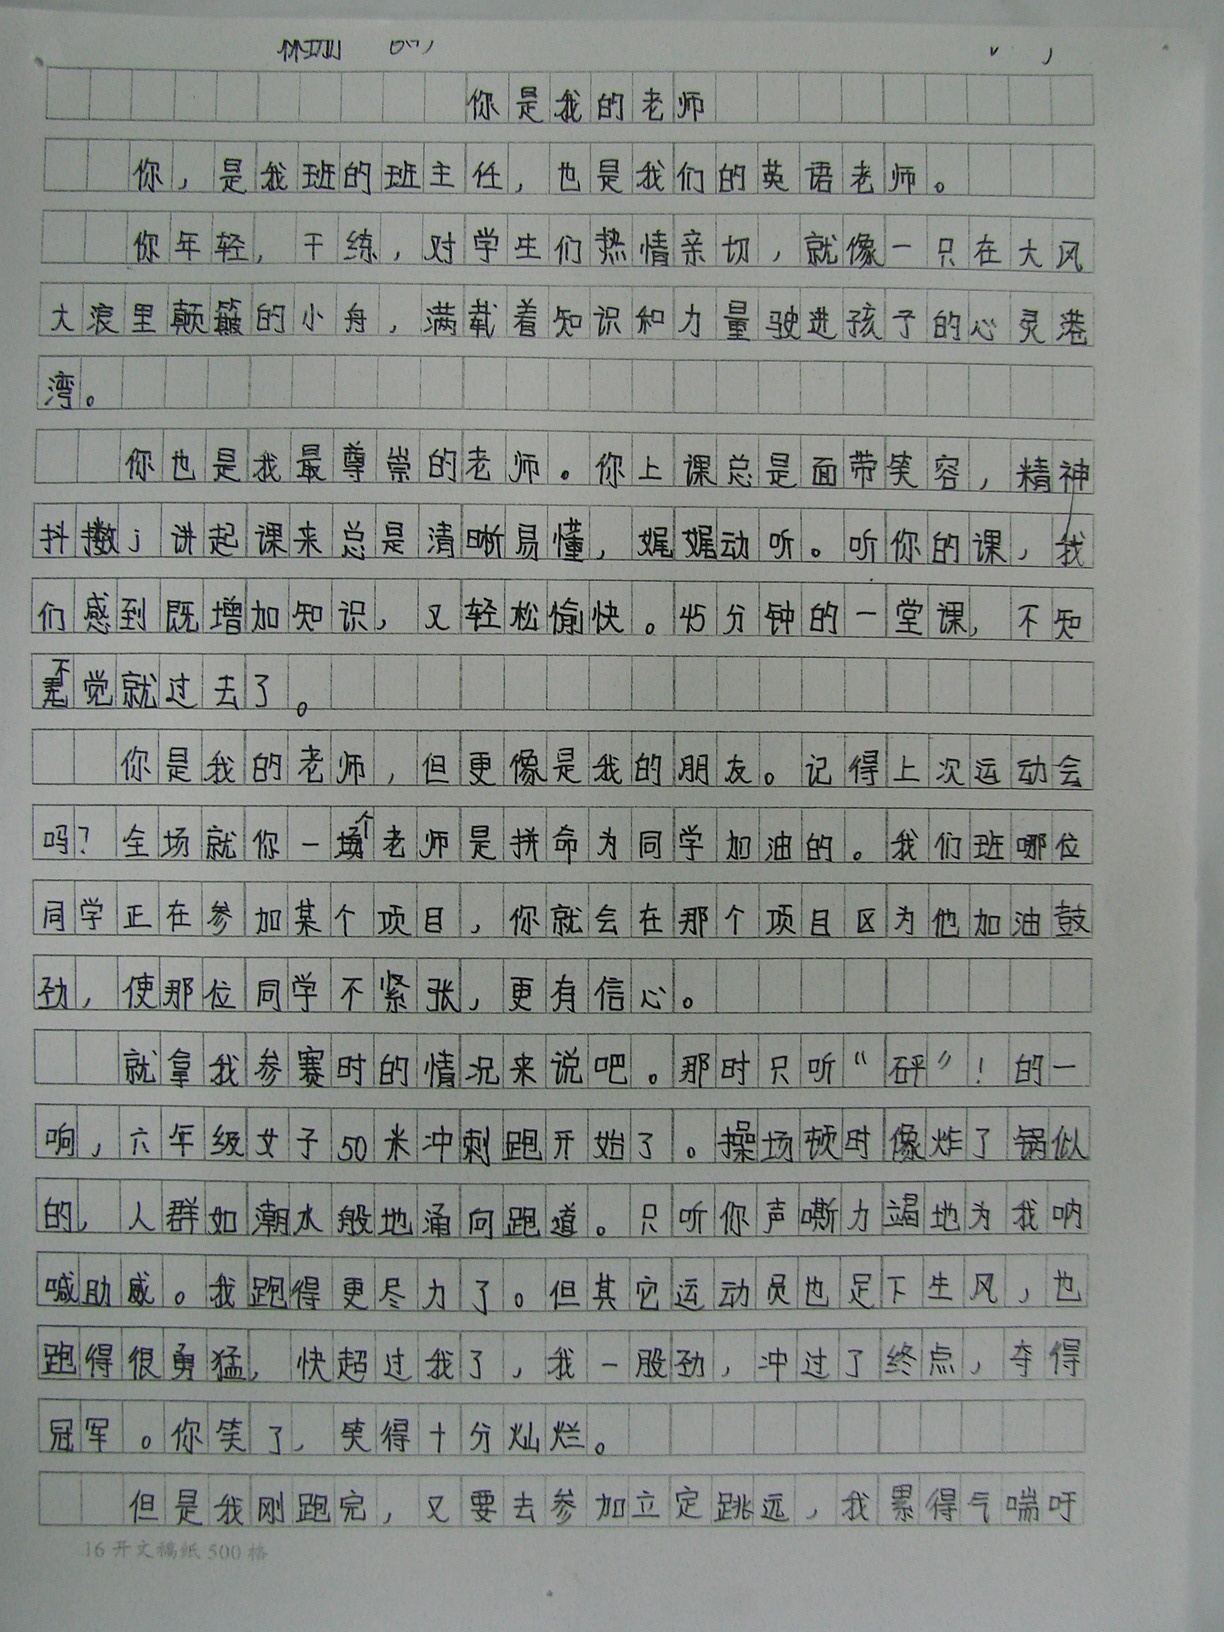 你是我的老师
你，是我班的班主任，也是我们的英语老师。
你年轻，干练，对学生们热情亲切，就像一只在大风
大浪里颠簸的小舟，满载着知识和力量驶进孩子的心灵港
湾。
你也是我最尊崇的老师。你上课总是面带笑容，精神
抖擞，讲起课来总是清晰易懂，娓娓动听。听你的课，我
们感到既增加知识，又轻松愉快。45分钟的一堂课，不知
不觉就过去了。
你是我的老师，但更像是我的朋友。记得上次运动会
吗？全场就你一个老师是拼命为同学加油的。我们班哪位
同学正在参加某个项目，你就会在那个项目区为他加油鼓
劲，使那位同学不紧张，更有信心。
就拿我参赛时的情况来说吧。那时只听“砰”！的一
响，六年级女子50米冲刺跑开始了。操场顿时像炸了锅似
的，人群如潮水般地涌向跑道。只听你声嘶力竭地为我呐
喊助威。我跑得更尽力了。但其它运动员也足下生风，也
跑得很勇猛，快超过我了，我一股劲，冲过了终点，夺得
冠军。你笑了，笑得十分灿烂。
但是我刚跑完，又要去参加立定跳远，我累得气喘吁
16开文稿纸500格